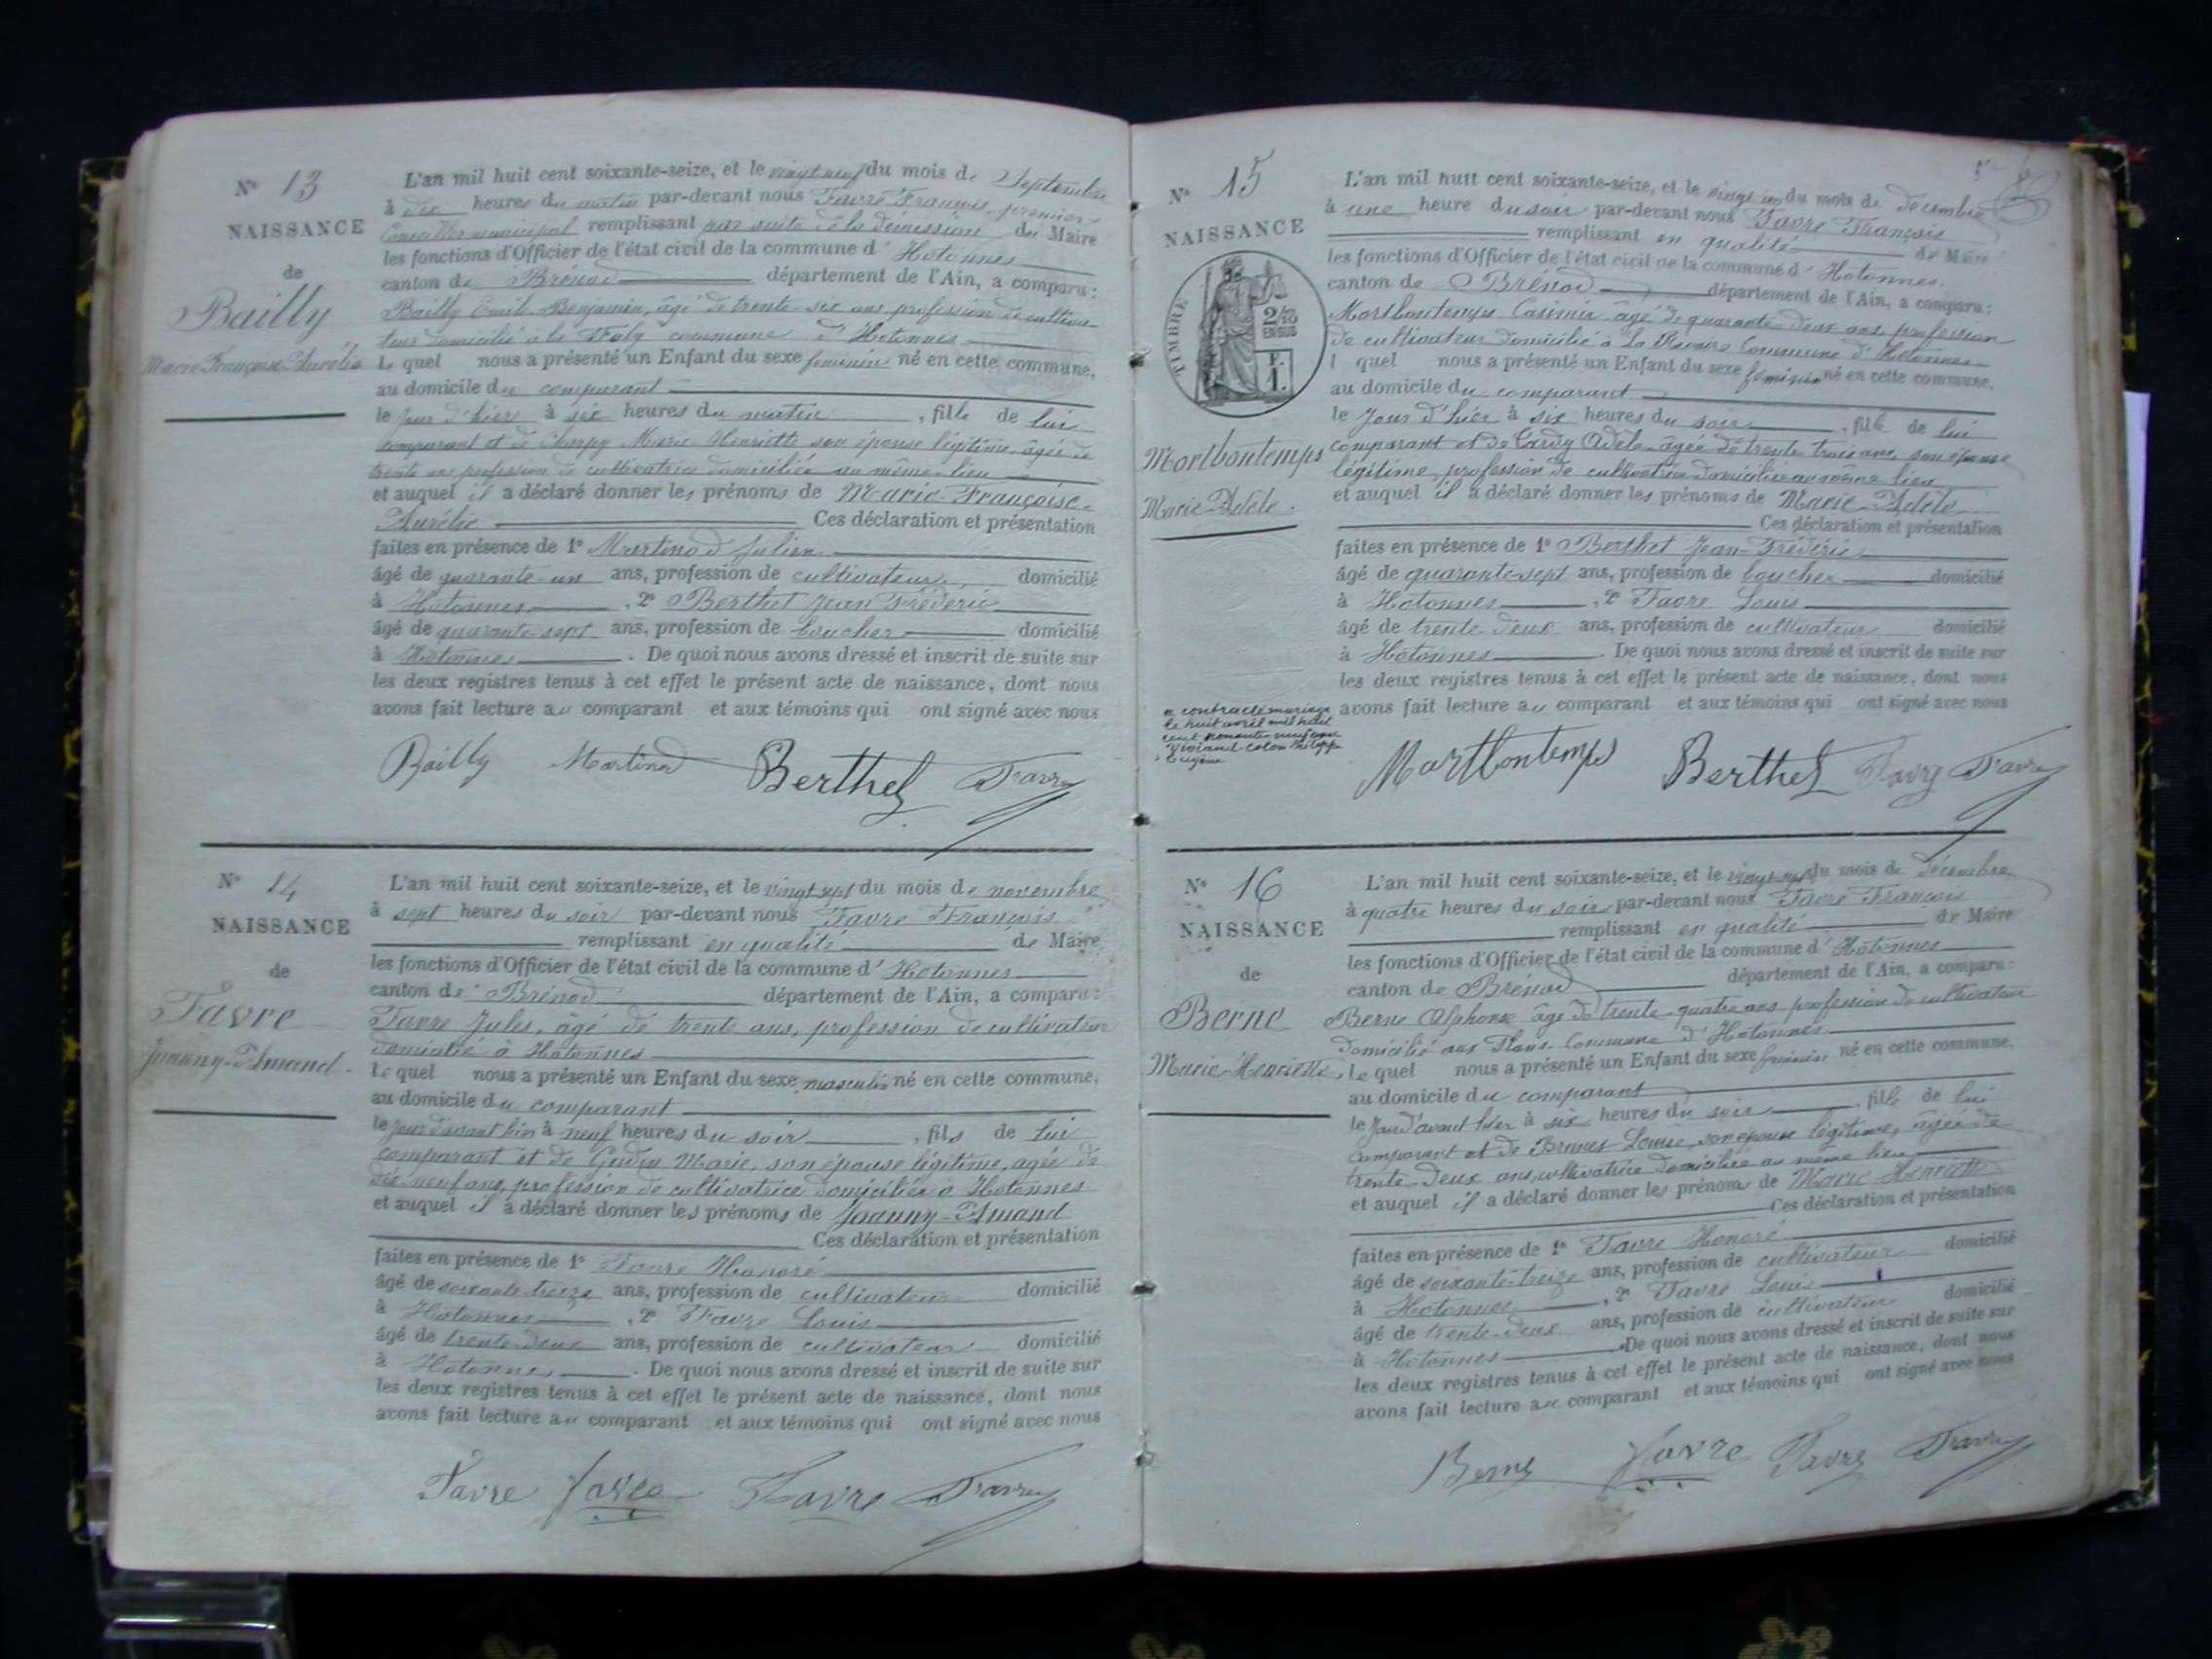 N° 13
NAISSANCE
de
Bailly
Marie Françoise Aurélie
L'an mil huit cent soixante-seize, et le vingt neuf du mois de Septembre
à dix heures du matin par-devant nous Favre François premier
Conseiller municipal remplissant par suite de la démission du Maire
les fonctions d'Officier de l'état civil de la commune d' Hotonnes
canton de Brénod département de l'Ain, a comparu:
Bailly Emile Benjamin, âgé de trente six ans profession de cultiva-
teur domicilié à la commune d'Hotonnes
Le quel nous a présenté un Enfant du sexe féminin né en cette commune,
au domicile du comparant
le jour d'hier à six heures du matin, fille de lui
comparant et de Charpy Marie Henriette son épouse légitime, âgée de
trente ans profession de cultivatrice domiciliée au même lieu
et auquel il a déclaré donner les prénoms de Marie-Françoise-
Aurélie Ces déclaration et présentation
faites en présence de 1° Martinod Julien
âgé de quarante-un ans, profession de cultivateur, domicilié
à Hotonnes, 2° Berthet Jean Frédéric
âgé de quarante-sept ans, profession de boucher domicilié
à Hotonnes. De quoi nous avons dressé et inscrit de suite sur
les deux registres tenus à cet effet le présent acte de naissance, dont nous
avons fait lecture au comparant et aux témoins qui ont signé avec nous
Bailly Martinod Berthet Favre
N° 14
NAISSANCE
de
Favre
Joanny-Amand.
L'an mil huit cent soixante-seize, et le vingt sept du mois de novembre
à sept heures du soir par-devant nous Favre François
remplissant en qualité de Maire
les fonctions d'Officier de l'état civil de la commune d' Hotonnes
canton de Brénod département de l'Ain, a comparu:
Favre Jules, âgé de trente ans, profession de cultivateur
domicilié à Hotonnes
Le quel nous a présenté un Enfant du sexe masculin né en cette commune,
au domicile du comparant
le jour d'avant hier à neuf heures du soir, fils de lui
comparant et de Marie, son épouse légitime, âgée de
dix neuf ans, profession de cultivatrice domiciliée à Hotonnes
et auquel il a déclaré donner les prénoms de Joanny-Amand
Ces déclaration et présentation
faites en présence de 1° Favre Honoré
âgé de soixante-treize ans, profession de cultivateur domicilié
à Hotonnes, 2° Favre Louis
âgé de trente-deux ans, profession de cultivateur domicilié
à Hotonnes. De quoi nous avons dressé et inscrit de suite sur
les deux registres tenus à cet effet le présent acte de naissance, dont nous
avons fait lecture au comparant et aux témoins qui ont signé avec nous
Favre Favre Favre Favre
N° 15
NAISSANCE
TIMBRE
F.
1.
Mortbontemps
Marie Adèle.
a contracté mariage
le huit avril mil huit
cent nonante neuf avec
Philippe
Eugène
L'an mil huit cent soixante-seize, et le vingt un du mois de décembre
à une heure du soir par-devant nous Favre François
remplissant en qualité de Maire
les fonctions d'Officier de l'état civil de la commune d' Hotonnes.
canton de Brénod département de l'Ain, a comparu:
Mortbontemps Casimir âgé de quarante deux ans profession
de cultivateur domicilié à la Commune d'Hotonnes
l quel nous a présenté un Enfant du sexe féminin né en cette commune,
au domicile du comparant
le jour d'hier à six heures du soir, fille de lui
comparant et de Cardy Adèle âgée de trente trois ans, son épouse
légitime, profession de cultivatrice domiciliée au même lieu
et auquel il a déclaré donner les prénoms de Marie Adèle
Ces déclaration et présentation
faites en présence de 1° Berthet Jean-Frédéric
âgé de quarante-sept ans, profession de boucher domicilié
à Hotonnes, 2° Favre Louis
âgé de trente-deux ans, profession de cultivateur domicilié
à Hotonnes. De quoi nous avons dressé et inscrit de suite sur
les deux registres tenus à cet effet le présent acte de naissance, dont nous
avons fait lecture au comparant et aux témoins qui ont signé avec nous
Mortbontemps Berthet Favre Favre
N° 16
NAISSANCE
de
Berne
Marie-Henriette
L'an mil huit cent soixante-seize, et le du mois de décembre
à quatre heures du soir par-devant nous Favre François
remplissant en qualité de Maire
les fonctions d'Officier de l'état civil de la commune d' Hotonnes
canton de Brénod département de l'Ain, a comparu:
Berne Alphonse âgé de trente-quatre ans profession de cultivateur
domicilié aux Plans Commune d'Hotonnes
Le quel nous a présenté un Enfant du sexe féminin né en cette commune,
au domicile du comparant
le jour d'avant hier à six heures du soir, fille de lui
comparant et de Louise, son épouse légitime, âgée de
trente-deux ans, cultivatrice domiciliée au même lieu
et auquel il a déclaré donner les prénoms de Marie Henriette
Ces déclaration et présentation
faites en présence de 1° Favre Honoré
âgé de soixante-treize ans, profession de cultivateur domicilié
à Hotonnes, 2° Favre Louis
âgé de trente-deux ans, profession de cultivateur domicilié
à Hotonnes De quoi nous avons dressé et inscrit de suite sur
les deux registres tenus à cet effet le présent acte de naissance, dont nous
avons fait lecture au comparant et aux témoins qui ont signé avec nous
Berne Favre Favre Favre